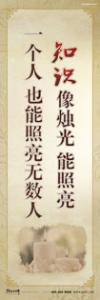 知识像烛光 能照亮
一个人 也能照亮无数人